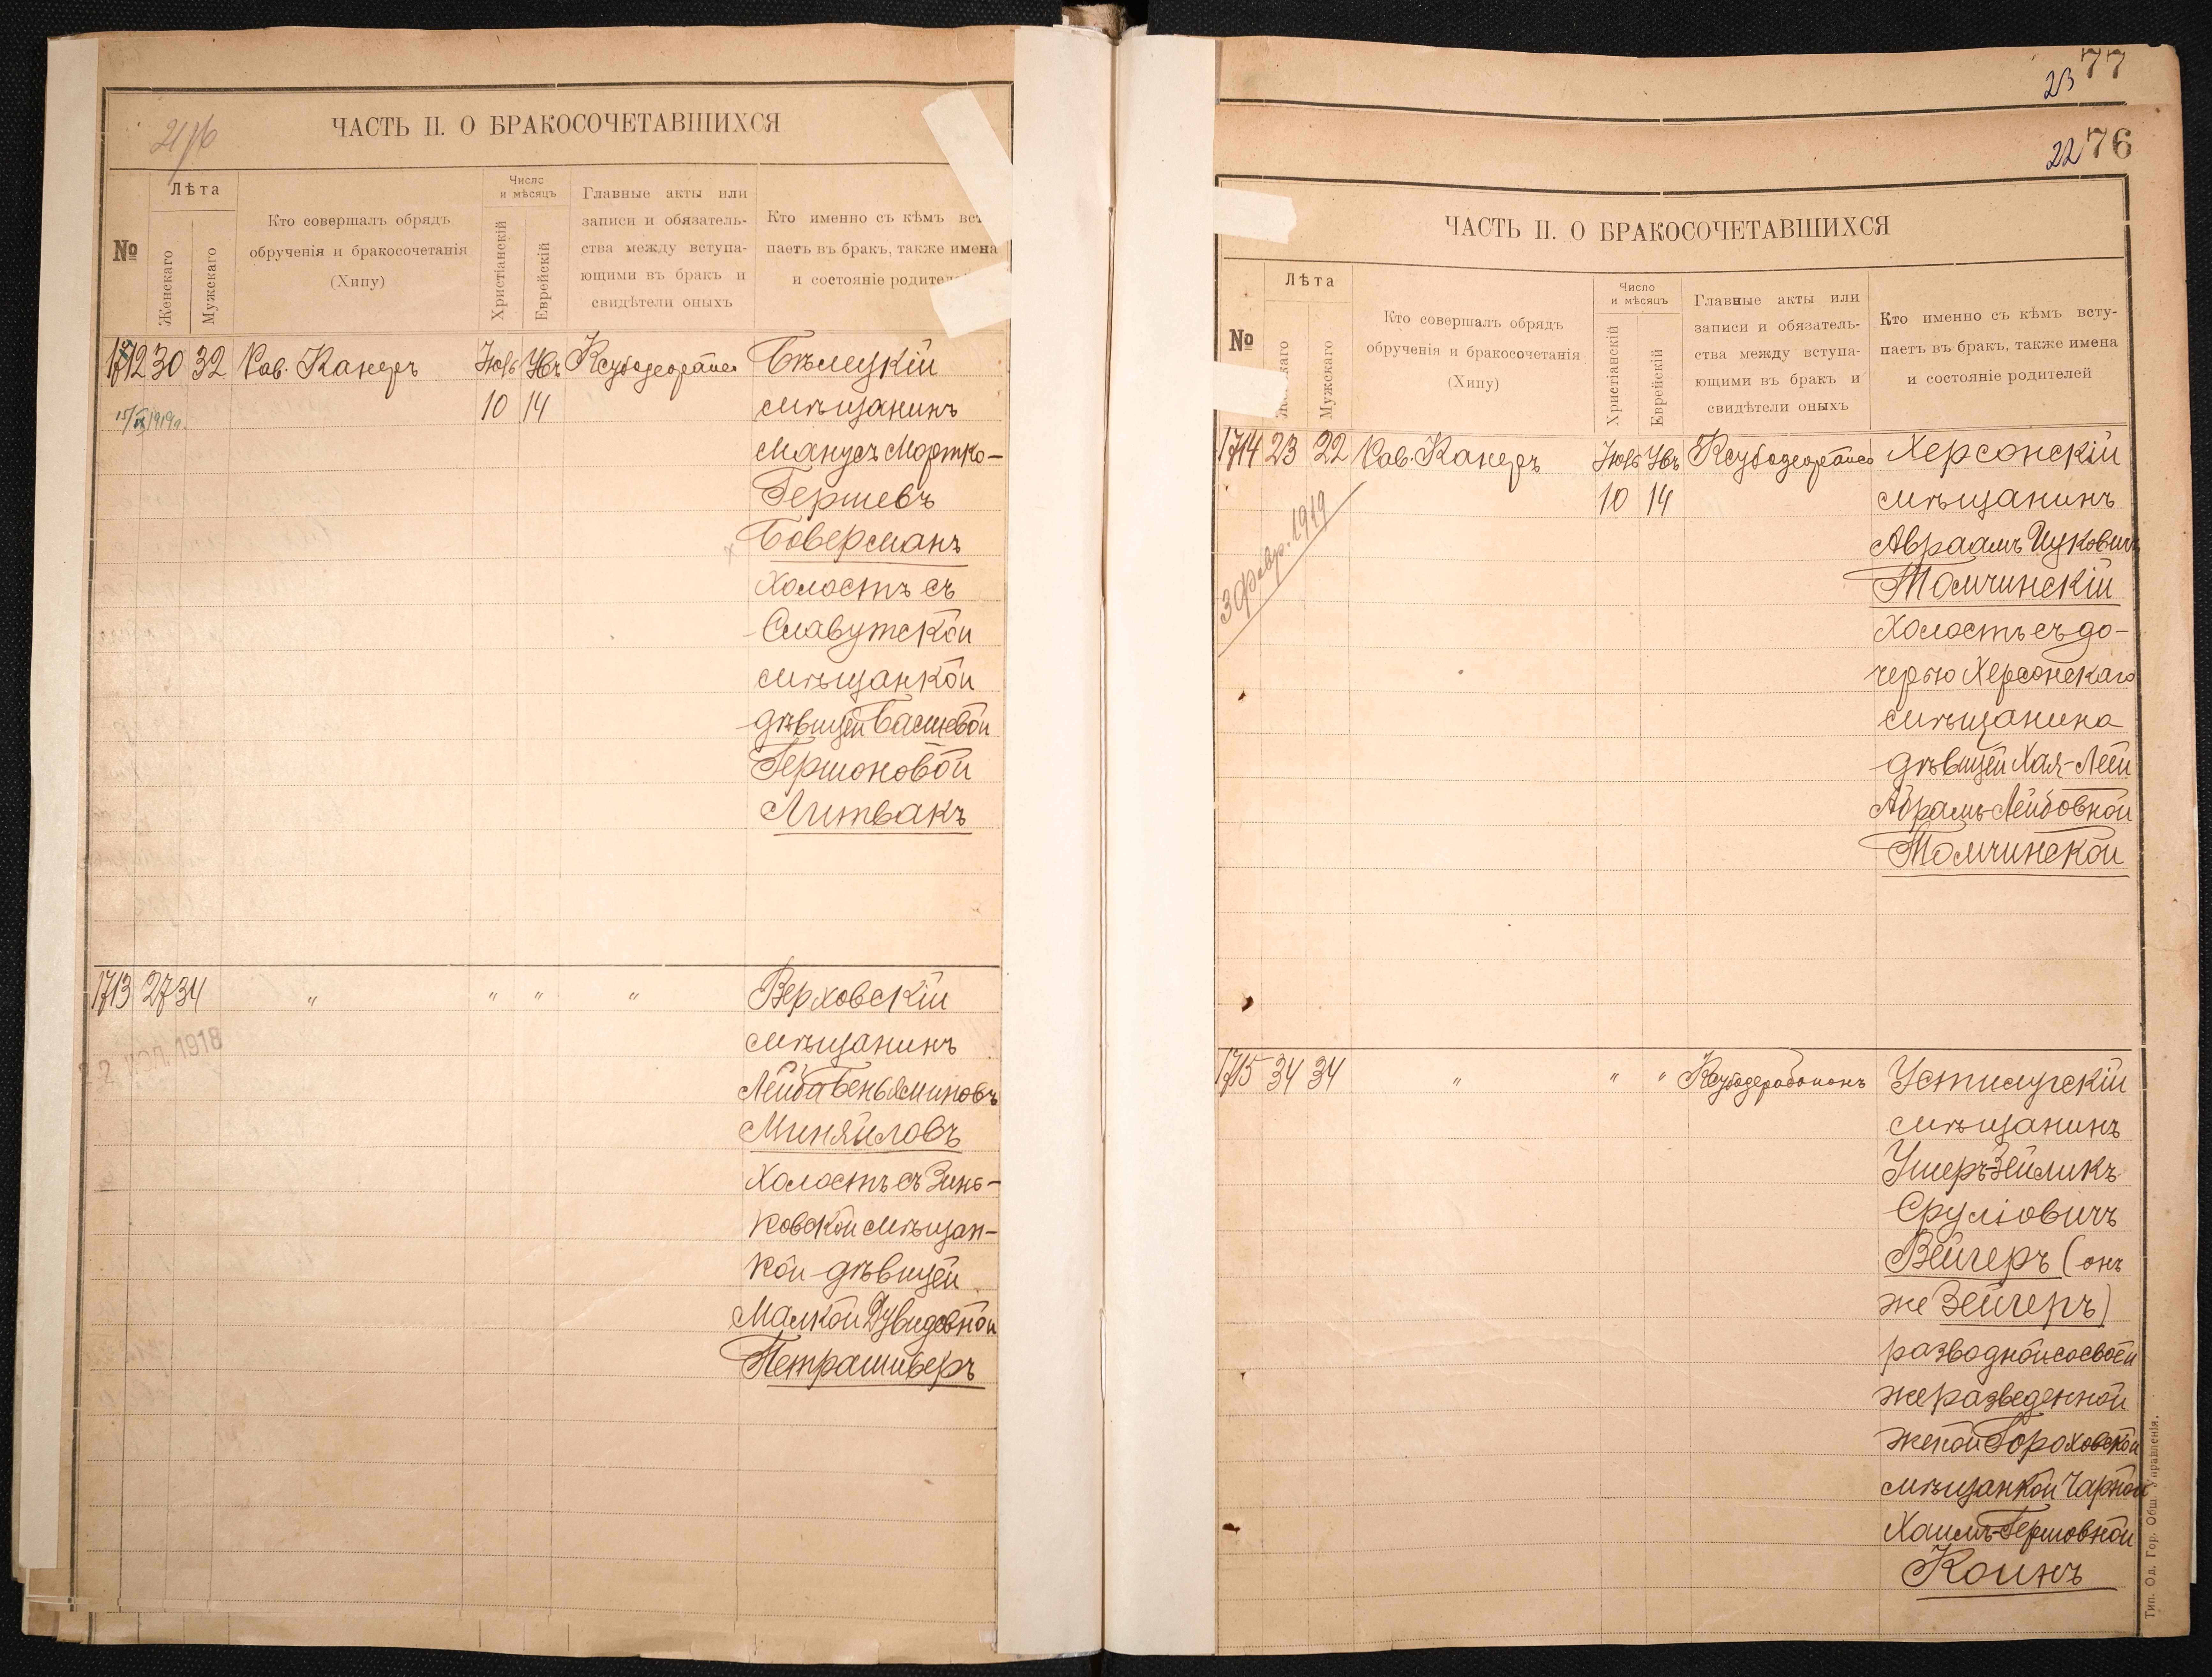 ЧАСТЬ II. О БРАКОСОЧЕТАВШИХСЯ
№
Лѣта
Женскаго
Мужскаго
Кто совершалъ обрядъ
обрученія и бракосочетанія
(Хипу)
Число
и мѣсяцъ
Христіанскій
Еврейскій
Главные акты или
записи и обязатель-
ства между вступа-
ющими въ бракъ и
свидѣтели оныхъ
Кто именно съ кѣмъ вст
паетъ въ бракъ, также имена
и состояніе родителей
1712 30 32 Рав. Канеръ
10 14
15/IX 1919 г.
Бѣлецкій
мѣщанинъ
Манусъ Мортко-
Гершевъ
Боверманъ
холостъ съ
Славутской
мѣщанкой
дѣвицей Басшевой
Гершоновой
Литвакъ
1713 27 34 " " " "
1918
Верховскій
мѣщанинъ
Лейба Беньяминовъ
Миняйловъ
холостъ съ Зинь-
ковской мѣщан-
кой дѣвицей
Малкой Дувидовной
Петрашиверъ
23 77
22 76
ЧАСТЬ II. О БРАКОСОЧЕТАВШИХСЯ
№
Лѣта
Женскаго
Мужскаго
Кто совершалъ обрядъ
обрученія и бракосочетанія
(Хипу)
Число
и мѣсяцъ
Христіанскій
Еврейскій
Главные акты или
записи и обязатель-
ства между вступа-
ющими въ бракъ и
свидѣтели оныхъ
Кто именно съ кѣмъ всту-
паетъ въ бракъ, также имена
и состояніе родителей
1714 23 22 Рав. Канеръ
10 14
3 февр. 1919
Херсонскій
мѣщанинъ
Авраамъ Ицковичъ
Томчинскій
холостъ съ до-
черью Херсонскаго
мѣщанина
дѣвицей Хая-Леей
Абрамъ-Лейбовной
Томчинской
1715 34 34 " " "
Устилугскій
мѣщанинъ
Ушеръ-Зейликъ
Сруліовичъ
Вейгеръ (онъ
же Зейгеръ)
разводной со своей
же разведенной
женой Гороховской
мѣщанкой Чарной
Хаимъ-Гершовной
Коинъ
Тип. Од. Гор. Общ. Управленія.